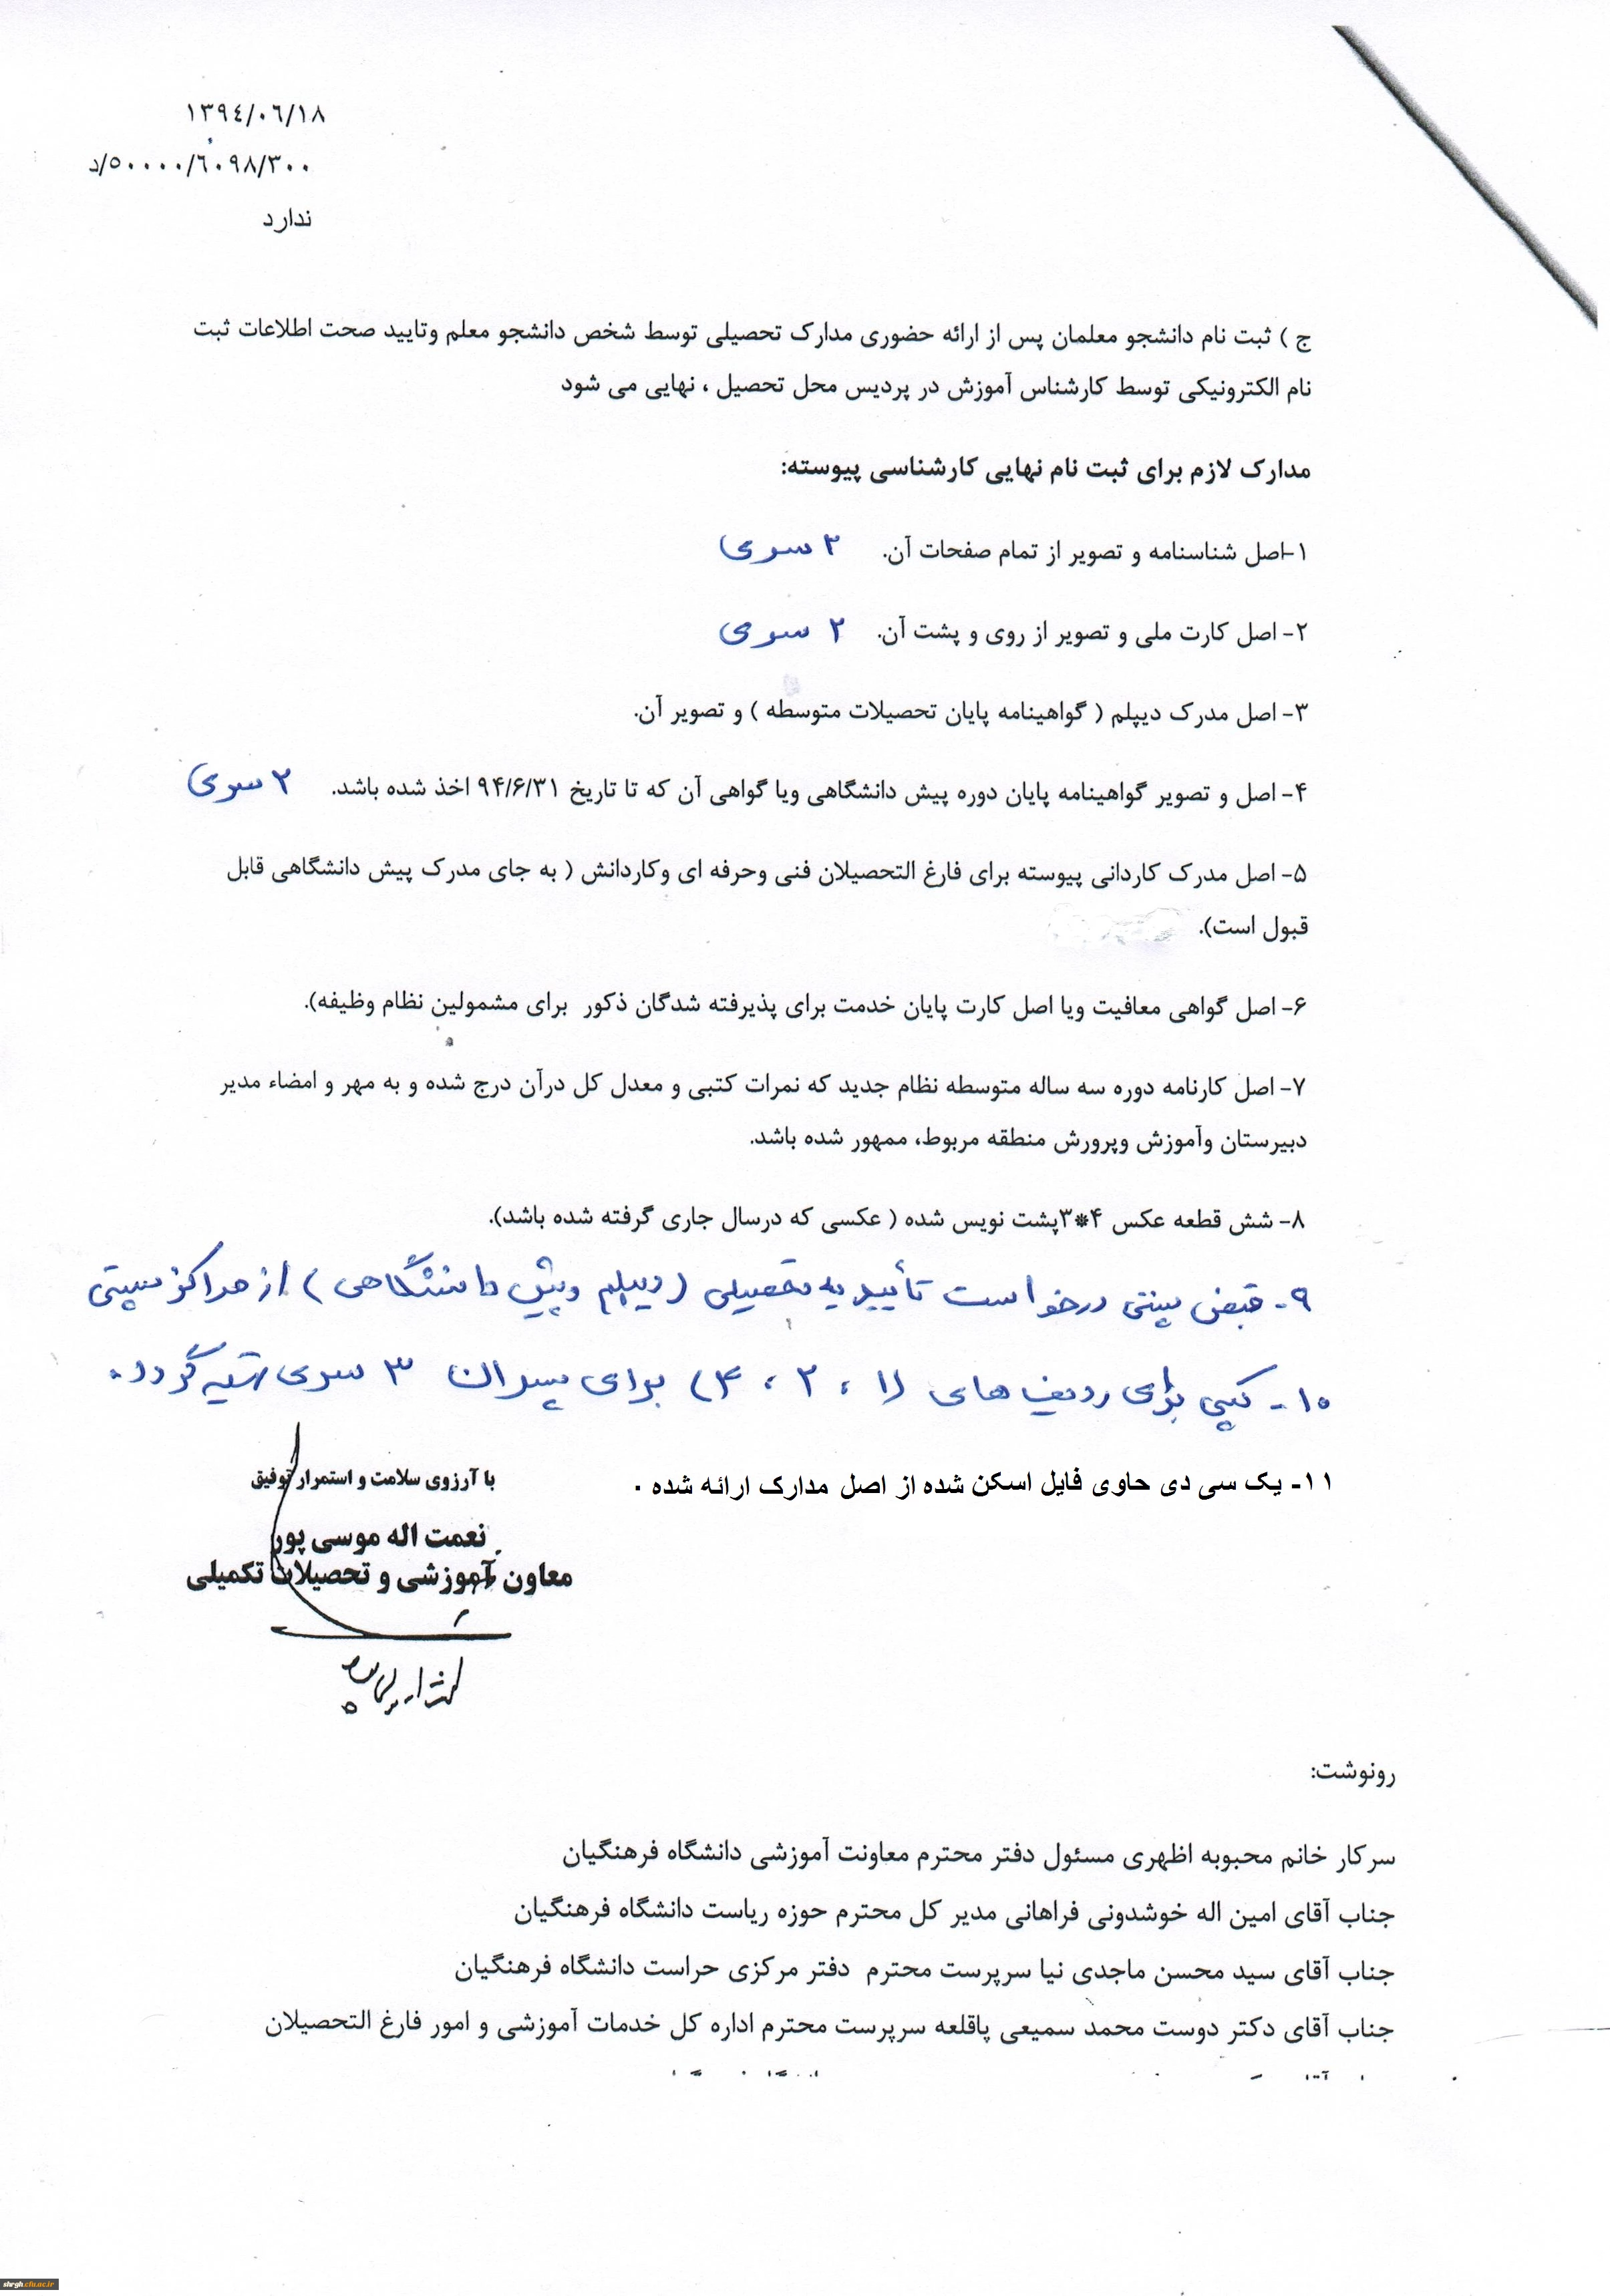 ۱۳۹٤/۰٦/۱۸
۵۰۰۰۰/٦۰۹۸/۳۰۰/د
ندارد
ج ) ثبت نام دانشجو معلمان پس از ارائه حضوری مدارک تحصیلی توسط شخص دانشجو معلم وتایید صحت اطلاعات ثبت
نام الکترونیکی توسط کارشناس آموزش در پردیس محل تحصیل ، نهایی می شود
مدارک لازم برای ثبت نام نهایی کارشناسی پیوسته:
۱-اصل شناسنامه و تصویر از تمام صفحات آن. ۲ سری
۲- اصل کارت ملی و تصویر از روی و پشت آن. ۲ سری
۳- اصل مدرک دیپلم ( گواهینامه پایان تحصیلات متوسطه ) و تصویر آن.
۴- اصل و تصویر گواهینامه پایان دوره پیش دانشگاهی ویا گواهی آن که تا تاریخ ۹۴/۶/۳۱ اخذ شده باشد. ۲ سری
۵- اصل مدرک کاردانی پیوسته برای فارغ التحصیلان فنی وحرفه ای وکاردانش ( به جای مدرک پیش دانشگاهی قابل
قبول است).
۶- اصل گواهی معافیت ویا اصل کارت پایان خدمت برای پذیرفته شدگان ذکور برای مشمولین نظام وظیفه).
۷- اصل کارنامه دوره سه ساله متوسطه نظام جدید که نمرات کتبی و معدل کل درآن درج شده و به مهر و امضاء مدیر
دبیرستان وآموزش وپرورش منطقه مربوط، ممهور شده باشد.
۸- شش قطعه عکس ۴*۳پشت نویس شده ( عکسی که درسال جاری گرفته شده باشد).
۹- قبض پستی درخواست تأییدیه تحصیلی (دیپلم وپیش دانشگاهی) از مراکز پستی
۱۰- کپی برای ردیف های (۱ ، ۲ ، ۴) برای پسران ۳ سری تهیه گردد.
۱۱- یک سی دی حاوی فایل اسکن شده از اصل مدارک ارائه شده .
با آرزوی سلامت و استمرار توفیق
نعمت اله موسی پور
معاون آموزشی و تحصیلات تکمیلی
رونوشت:
سرکار خانم محبوبه اظهری مسئول دفتر محترم معاونت آموزشی دانشگاه فرهنگیان
جناب آقای امین اله خوشدونی فراهانی مدیر کل محترم حوزه ریاست دانشگاه فرهنگیان
جناب آقای سید محسن ماجدی نیا سرپرست محترم دفتر مرکزی حراست دانشگاه فرهنگیان
جناب آقای دکتر دوست محمد سمیعی پاقلعه سرپرست محترم اداره کل خدمات آموزشی و امور فارغ التحصیلان
shrgh.cfu.ac.ir